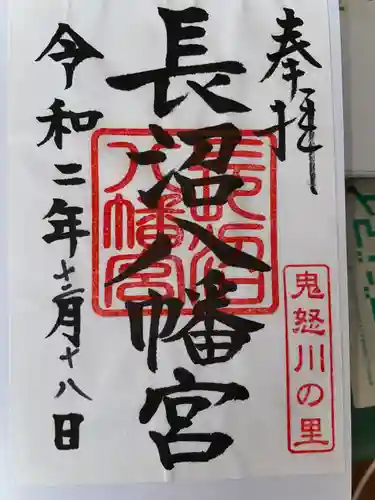 奉拝
長沼八幡宮
長沼八幡宮
鬼怒川の里
令和二年十二月十八日